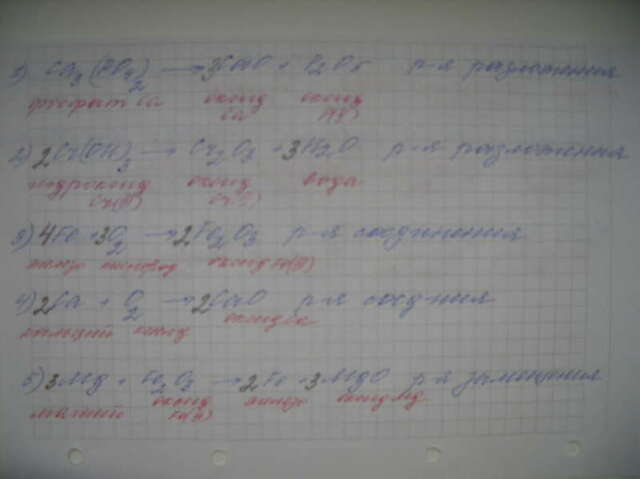 1) Ca3(PO4)2 → 3CaO + P2O5 р-я разложения
фосфат Ca оксид Ca оксид P(V)
2) 2Cr(OH)3 → Cr2O3 + 3H2O р-я разложения
гидроксид Cr(III) оксид вода
3) 4Fe + 3O2 → 2Fe2O3 р-я соединения
железо кислород оксид Fe(III)
4) 2Ca + O2 → 2CaO р-я соед-ния
кальций оксид Ca
5) 3Mg + Fe2O3 → 2Fe + 3MgO р-я замещения
магний оксид Fe(III) железо оксид Mg